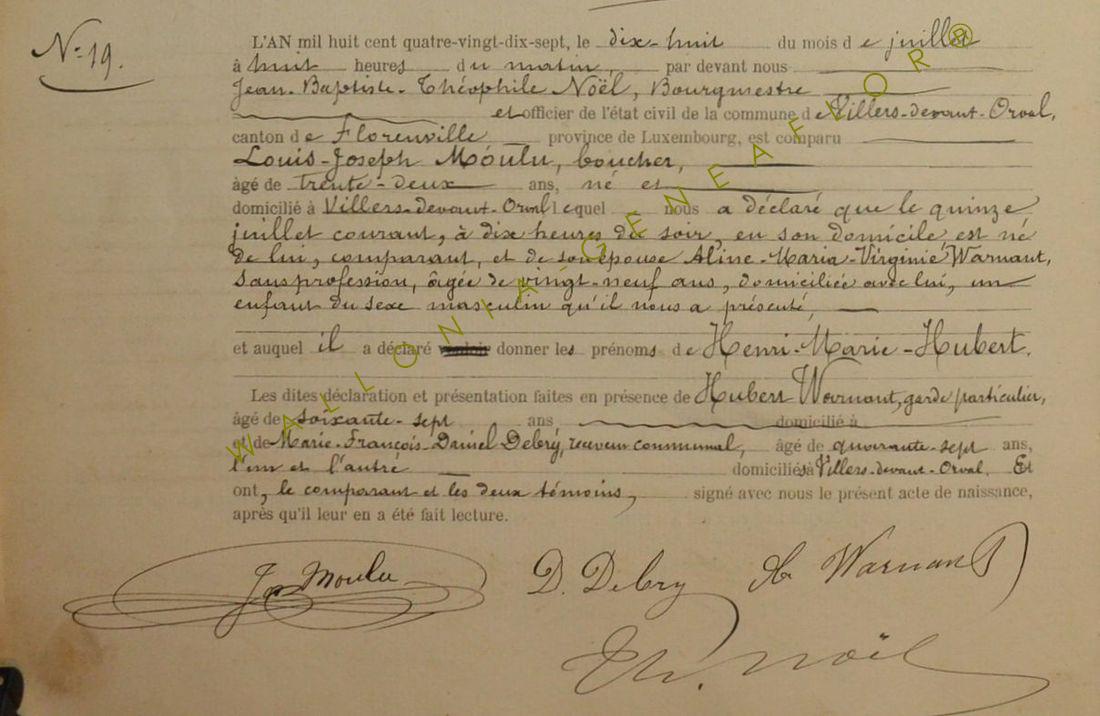 N° 19.
L'AN mil huit cent quatre-vingt-dix-sept, le dix-huit du mois d e juillet
à huit heures du matin, par devant nous
Jean-Baptiste-Théophile Noël, Bourgmestre
et officier de l'état civil de la commune d e Villers-devant-Orval,
canton d e Florenville province de Luxembourg, est comparu
Louis-Joseph Moulu, boucher,
âgé de trente-deux ans, né et
domicilié à Villers-devant-Orval lequel nous a déclaré que le quinze
juillet courant, à dix heures du soir, en son domicile est né
de lui, comparant, et de son épouse Aline-Maria-Virginie Warnant,
sans profession, âgée de vingt-neuf ans, domiciliée avec lui, un
enfant du sexe masculin qu'il nous a présenté,
et auquel il a déclaré vouloir donner les prénoms d e Henri-Marie-Hubert.
Les dites déclaration et présentation faites en présence de Hubert Warnant, garde particulier,
âgé de soixante-sept ans domicilié à
et de Marie-François-Daniel Debry, receveur communal, âgé de quarante-sept ans,
l'un et l'autre domiciliés à Villers-devant-Orval. Et
ont, le comparant et les deux témoins, signé avec nous le présent acte de naissance,
après qu'il leur en a été fait lecture.
Moulu D. Debry H. Warnant
Th. Noël
WALLONIA GENEAFLOR®